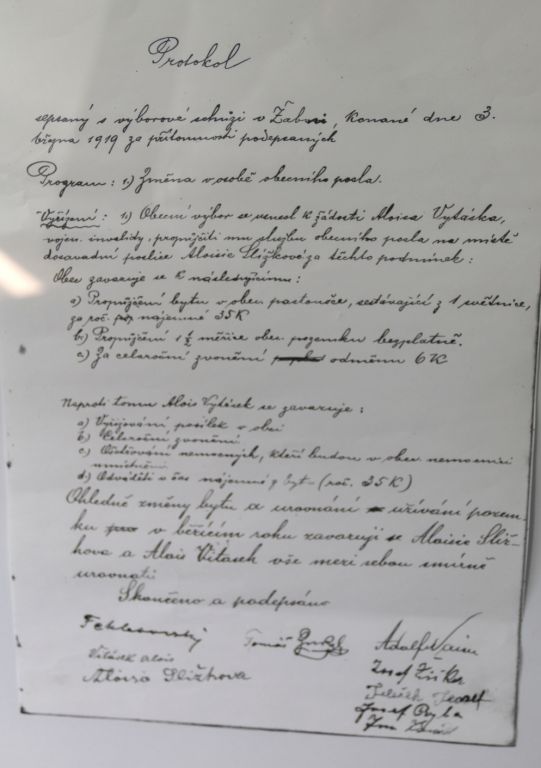 Protokol
sepsaný s výborové schůzi v Žabni, konané dne 3.
března 1919 za přítomnosti podepsaných
Program: 1.) Změna v osobě obecního posla.
Vyřízení: 1.) Obecní výbor se usnesl k žádosti Aloisa Vytáska,
vojen. invalidy, propůjčiti mu službu obecního posla na místě
dosavadní poslice Aloisie Sližkové za těchto podmínek:
Obec zavazuje se k následujícímu:
a) Propůjčení bytu v obec. pastoušce, sestávající z 1 světnice,
za roč. nájemné 35 K
b) Propůjčení 1 ½ měřice obec. pozemku bezplatně.
c) Za celoroční zvonění odměnu 6 K
Naproti tomu Alois Vytásek se zavazuje:
a) Vyřizování posílek v obci
b) Celoroční zvonění
c) Ošetřování nemocných, kteří budou v obec. nemocnici
umístněni
d) Odváděti v čas nájemné z bytu (roč. 35 K)
Ohledně změny bytu a urovnání užívání pozem-
ku v běžícím roku zavazují se Aloisie Sliž-
kova a Alois Vitasek vše mezi sebou smírně
urovnati
Skončeno a podepsáno
Tomáš
Adolf Vaim
Vitásek Alois
Josef Žižka
Aloisa Sližkova
Josef
Josef Ryba